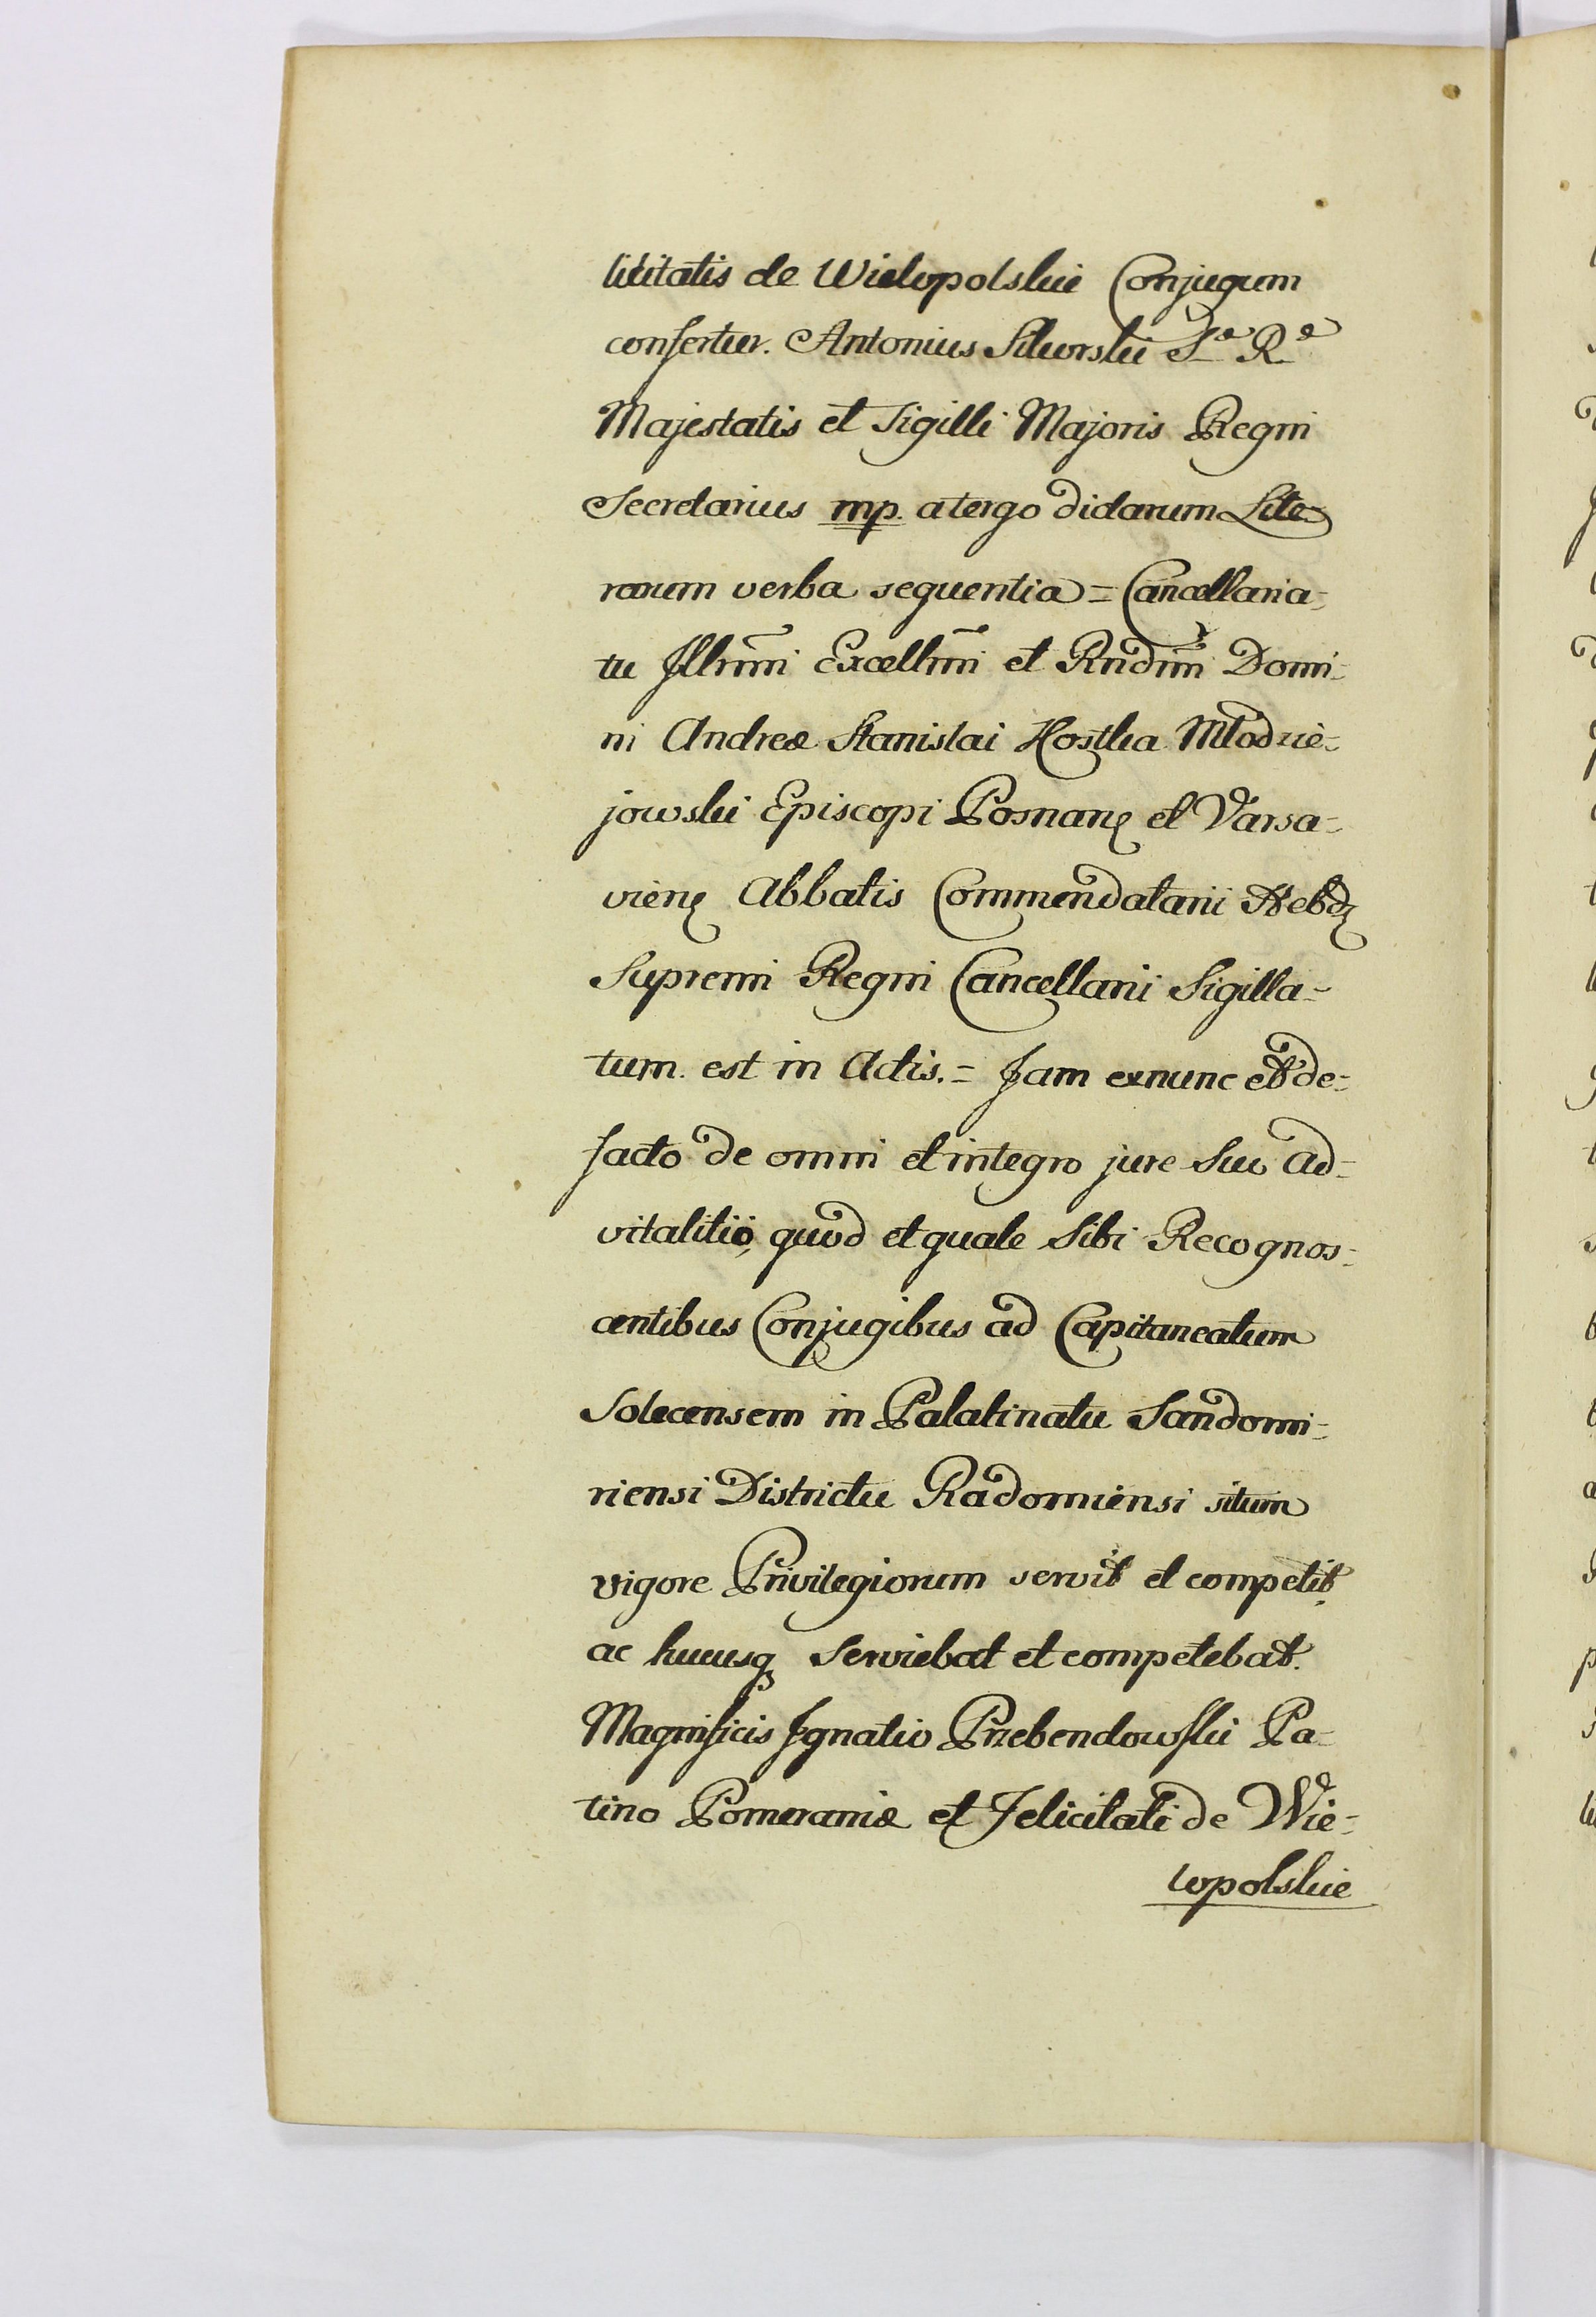 licitatis de Wielopolskie Conjugum
confertur. Antonius Sikorski Sæ Ræ
Majestatis et Sigilli Majoris Regni
Secretarius mp. a tergo dictarum Lite=
rarum verba sequentia = Cancellaria=
tu Jllmi Excellmi et Rndmi Domi=
ni Andreæ Stanislai Kostka Młodzie=
jowski Episcopi Posnanę et Varsa=
vienę Abbatis Commendatarii Hebdę
Supremi Regni Cancellarii Sigilla=
tum est in Actis. = Jam exnunc et de=
facto de omni et integro jure suo ad=
vitalitio, quod et quale Sibi Recognos=
centibus Conjugibus ad Capitaneatum
Solecensem in Palatinatu Sandomi=
riensi Districtu Radomiensi situm
vigore Privilegiorum servit et competit,
ac hucusq serviebat et competebat.
Magnificis Jgnatio Przebendowski Pa=
tino Pomeraniæ et Felicitati de Wie=
lopolskie